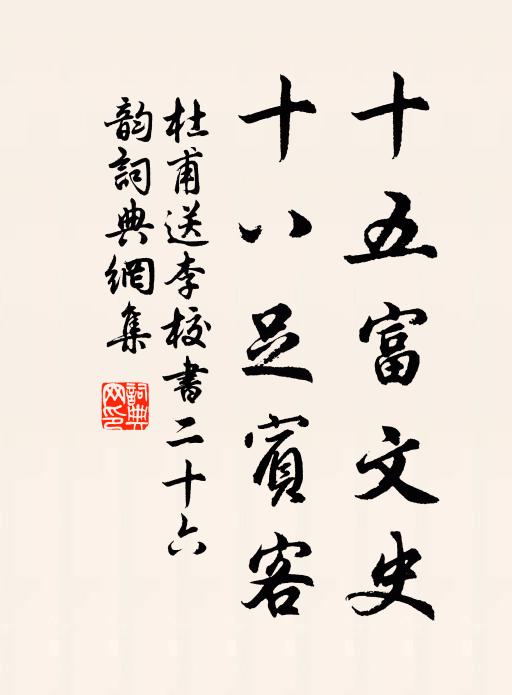 十五富文史
十八足賓客
杜甫送李校書二十六
韵詞典網集
詞典網印